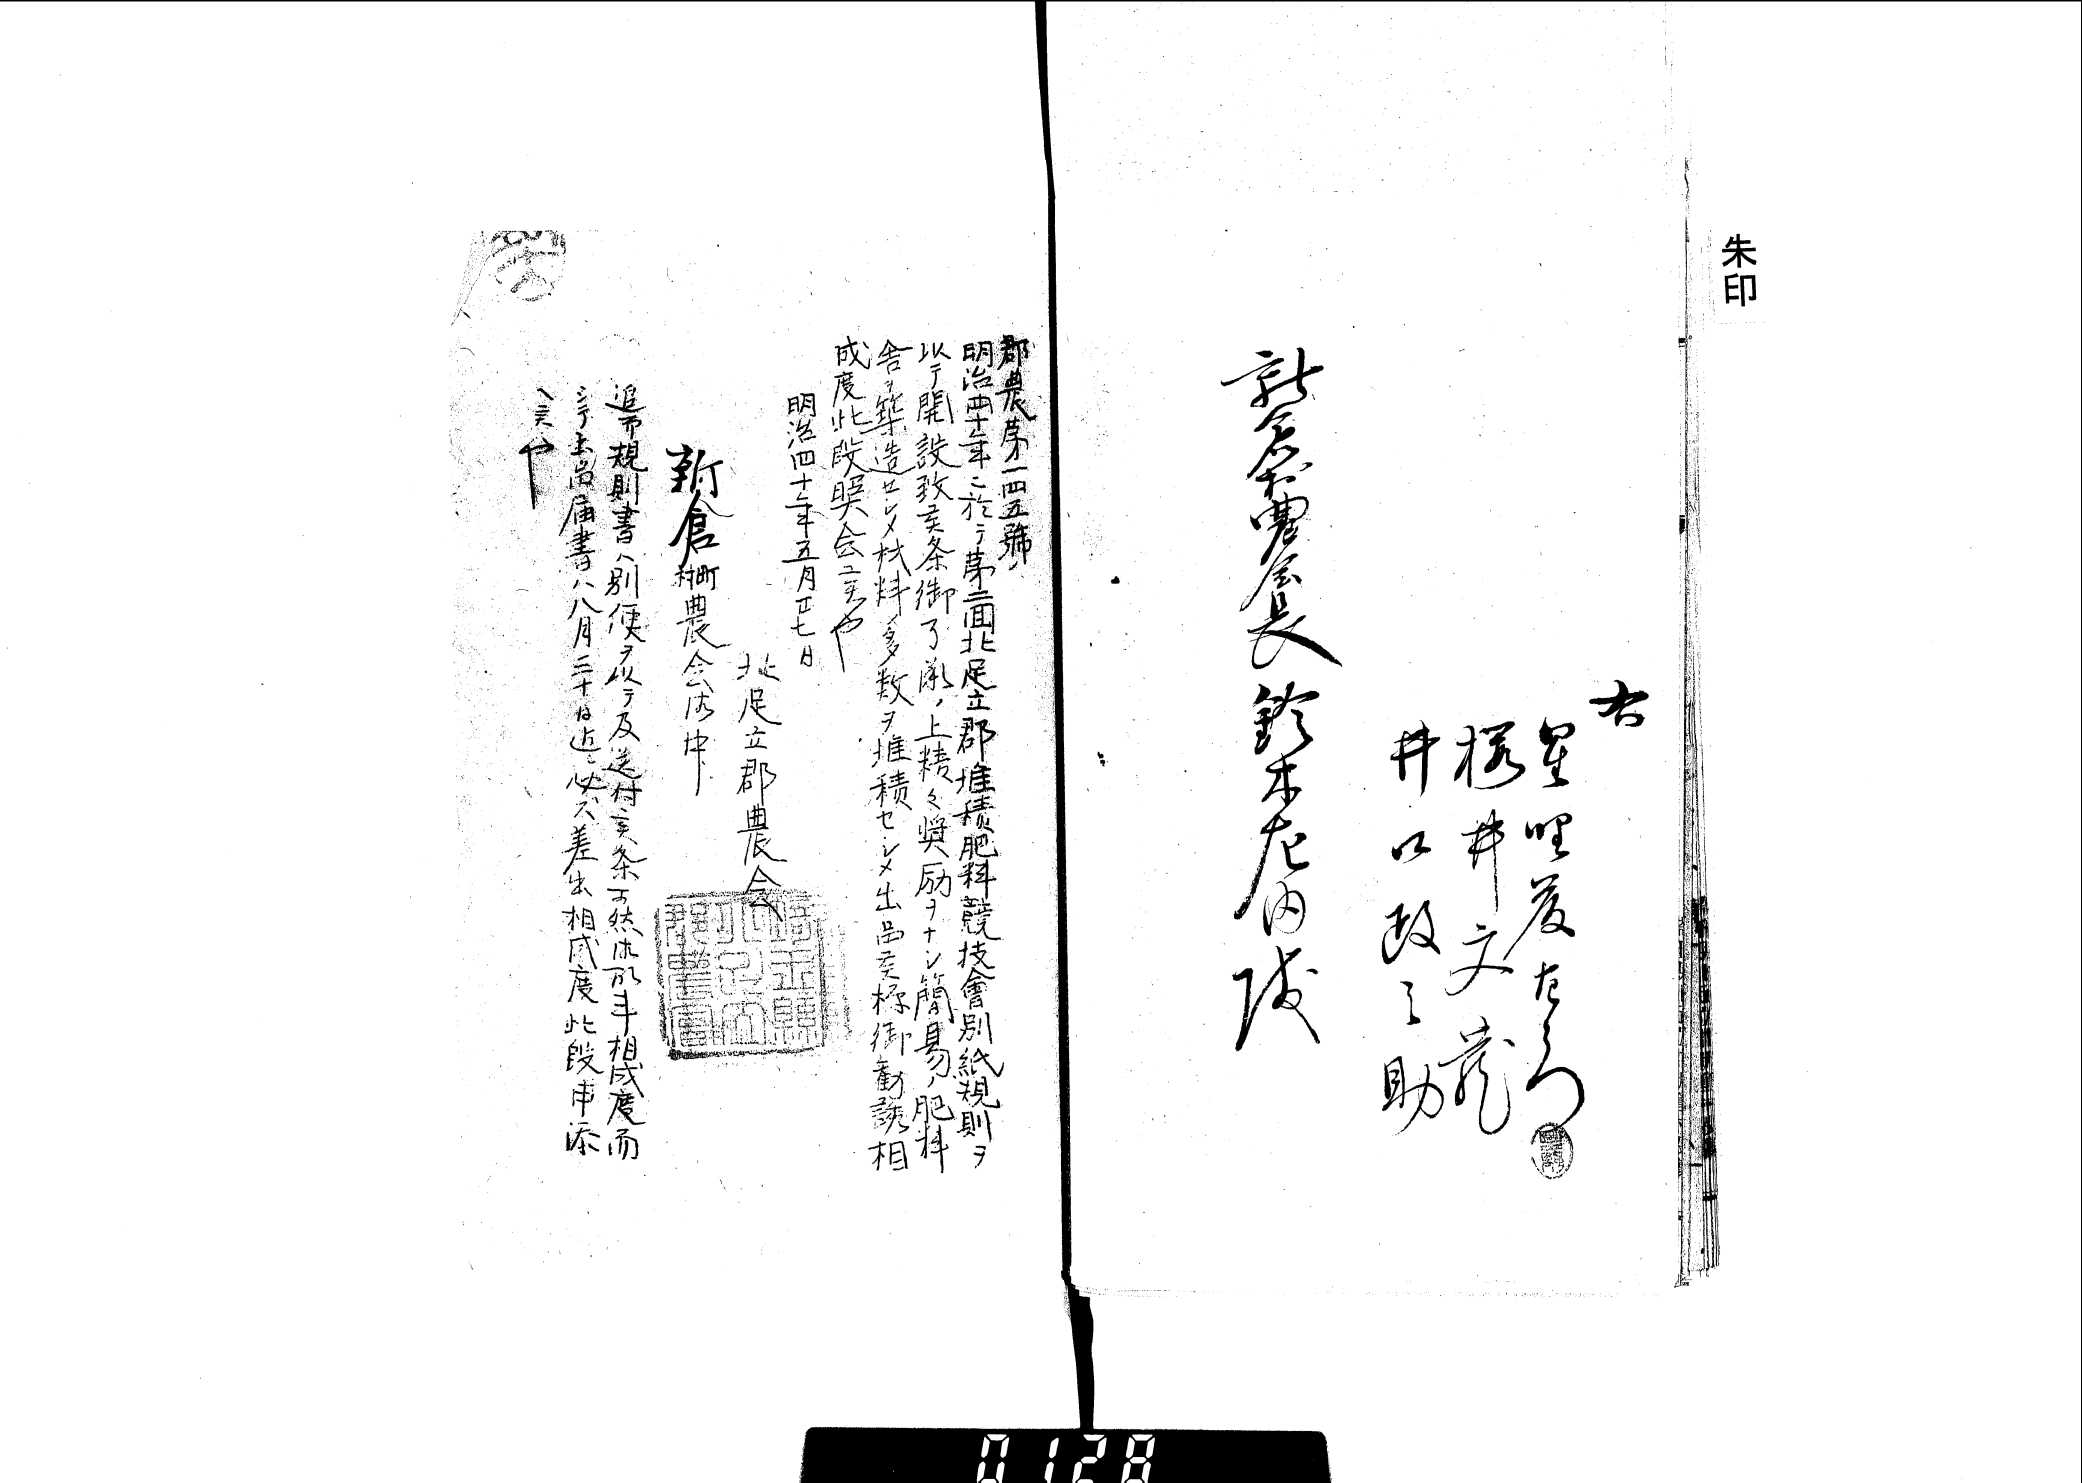 朱印
右
星野荘左衛門
桜井文蔵
井口政之助
新倉村農会長 鈴木左内殿
郡農第一四五號
明治四十年ニ於テ第二回北足立郡堆積肥料競技會別紙規則ヲ
以テ開設致候条御了承ノ上精々奨励ヲナシ簡易ノ肥料
舎ヲ築造セシメ材料多数ヲ堆積セシメ出品候様御勧誘相
成度此段照会候也
明治四十年五月廿七日
北足立郡農会
新倉村町農会御中
追而規則書ハ別便ヲ以テ及送付候条可然御取斗相成度而
シテ出品届書ハ八月三十日迄ニ必ス差出相成度此段申添
候也
0128